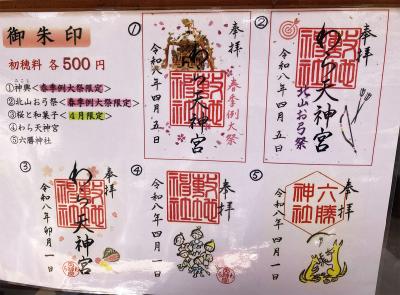 御朱印
初穂料 各500円
①神輿<春季例大祭限定>
②北山お弓祭<春季例大祭限定>
③桜と和菓子<4月限定>
④わら天神宮
⑤六勝神社
①
奉拝
わら天神宮
春季例大祭
令和八年四月五日
②
奉拝
わら天神宮
北山お弓祭
令和八年四月五日
③
奉拝
わら天神宮
令和八年卯月一日
④
奉拝
令和八年四月一日
⑤
奉拝
六勝神社
令和八年四月一日